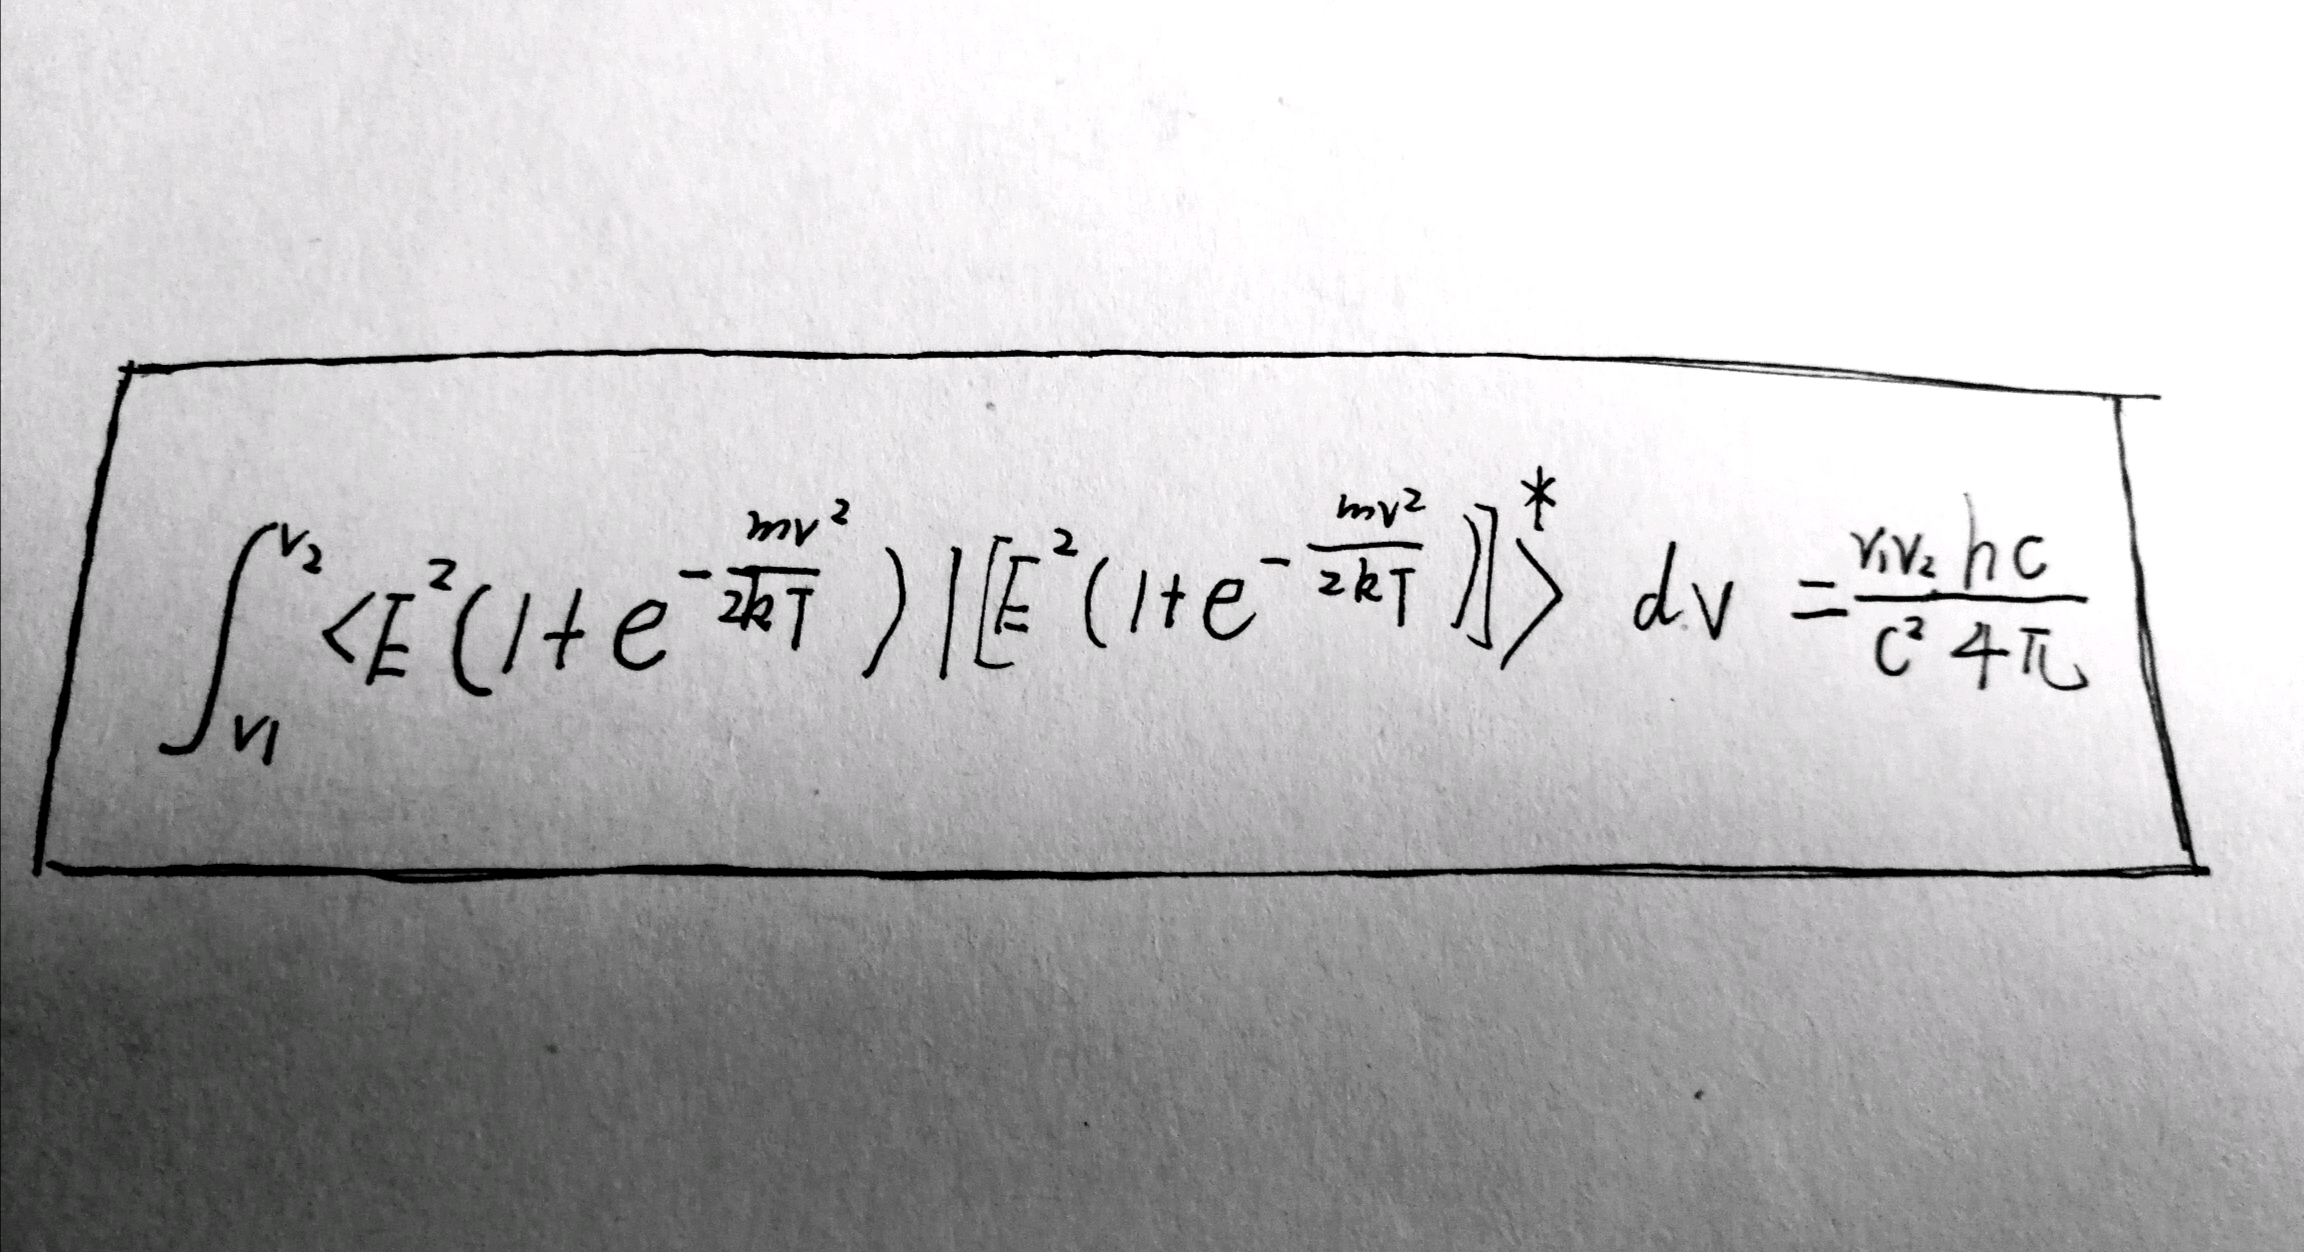 ∫_{v1}^{v2} <E²(1+e^{-\frac{mv²}{2kT}})|[E²(1+e^{-\frac{mv²}{2kT}})]*> dv = \frac{v₁v₂ hc}{c² 4π}